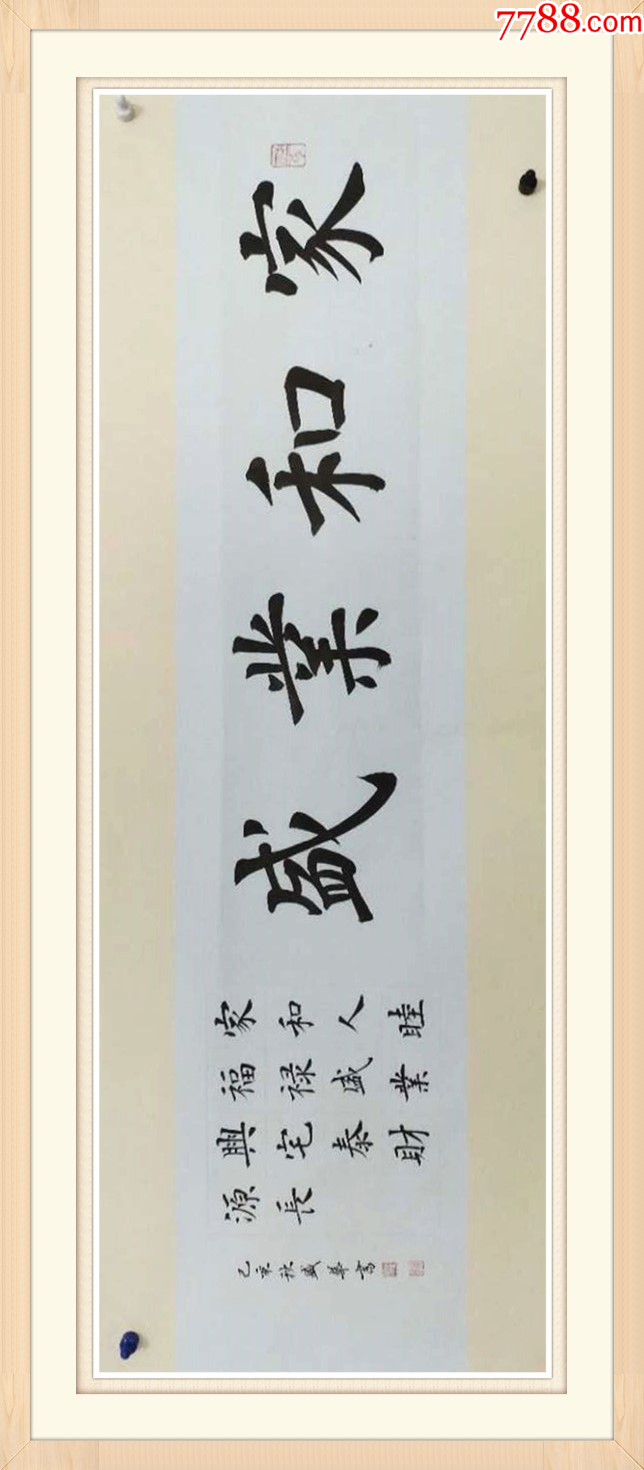 7788.com
家和業盛
家和人睦
福禄盛業
興宅泰財
源長
己亥秋盛華